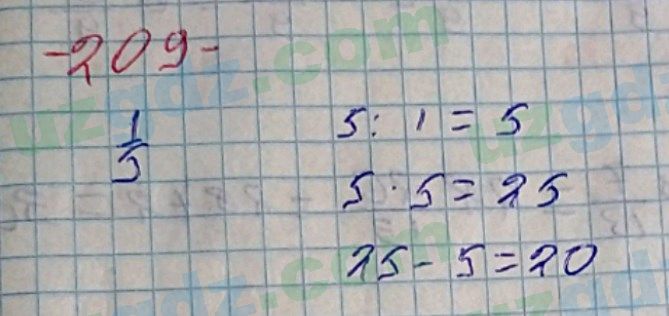 -209-
1/5
5 : 1 = 5
5 · 5 = 25
25 - 5 = 20
uzgdz.com